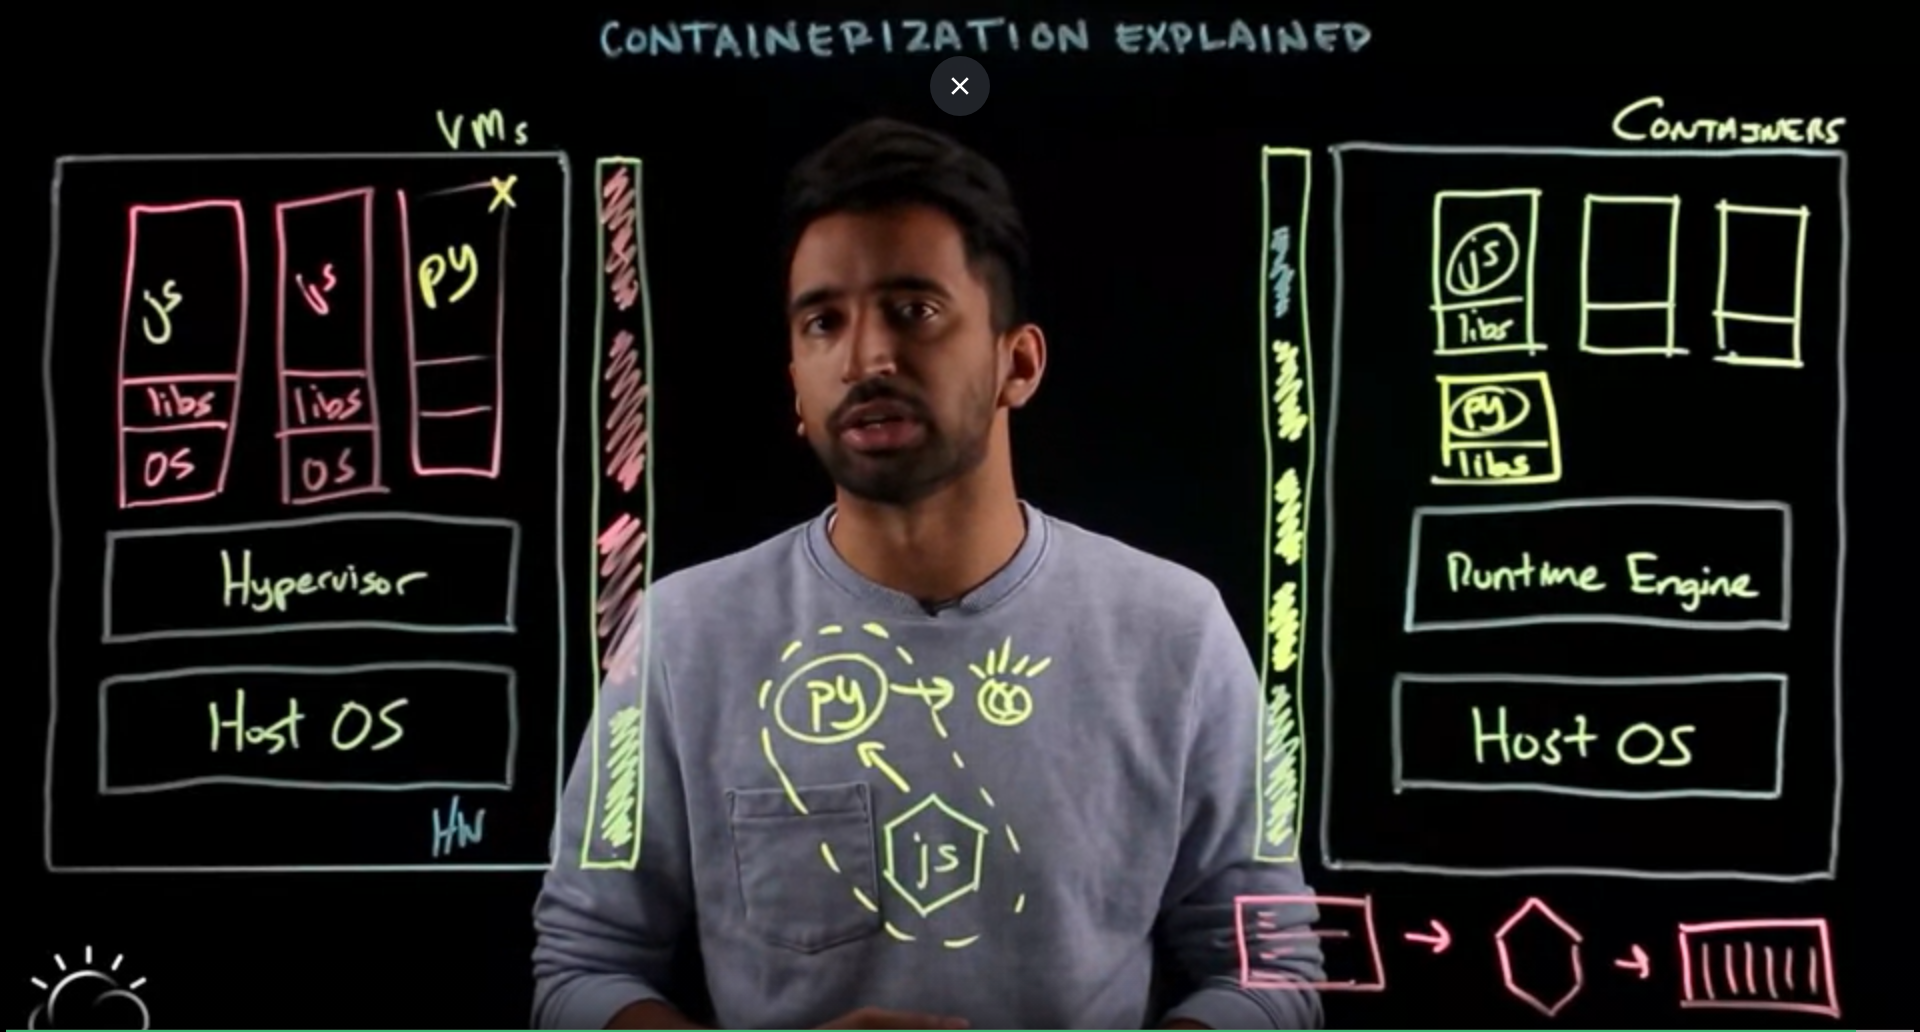 CONTAINERIZATION EXPLAINED
VMs
js
libs
OS
js
libs
OS
py
X
Hypervisor
Host OS
HW
py
js
CONTAINERS
js
libs
py
libs
Runtime Engine
Host OS